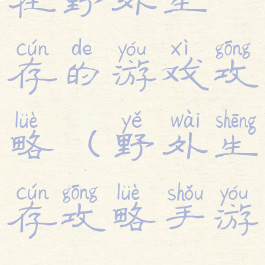 在野外生
cún de yóu xì gōng
存的游戏攻
lüè yě wài shēng
略（野外生
cún gōng lüè shǒu yóu
存攻略手游